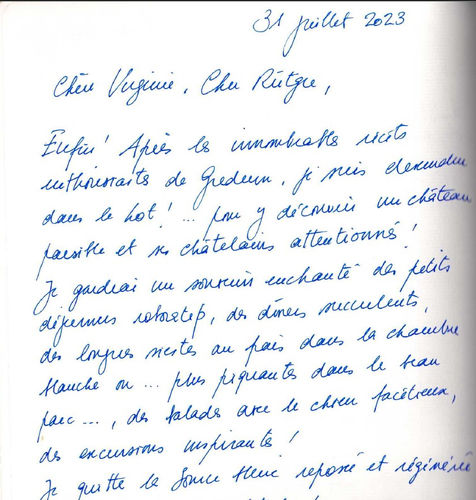 31 juillet 2023
Chère Virginie, Cher Rütger,
Enfin! Après les innombrables récits
enthousiastes de Gredeun, je suis descendue
dans le Lot! ... pour y découvrir un château
paisible et ses châtelains attentionnés!
Je garderai un souvenir enchanté des petits
déjeuners robostep, des dîners succulents,
des longues siestes au frais dans la chambre
blanche ou ... plus piquantes dans le beau
parc ..., des balades avec le chien facétieux,
des excursions inspirantes!
Je quitte la Source bleue reposée et régénérée